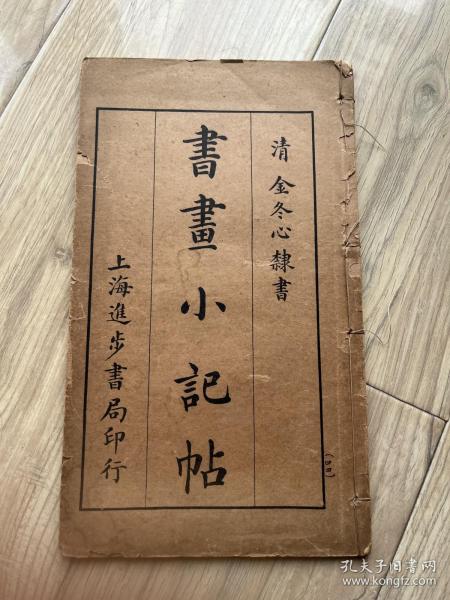 清 金冬心隸書
書畫小記帖
上海進步書局印行
(四四)
孔夫子旧书网
www.kongfz.com